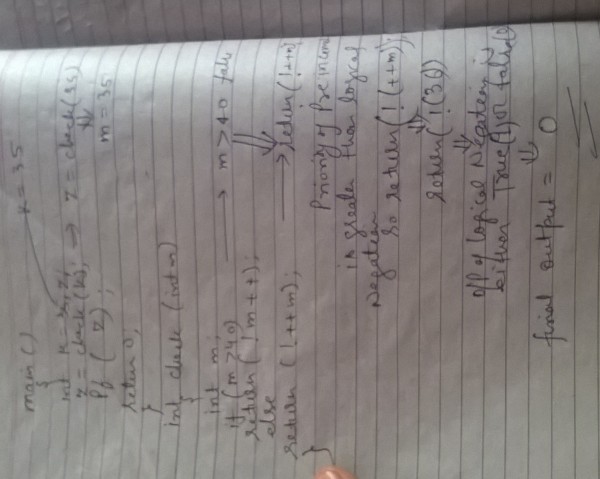 main ()
{
int k = 35, z;
k = 35
z = check (k); ⇒ z = check (35)
⇓
m = 35
Pf ( z );
return 0;
}
int check (int m)
{
int m;
if (m > 40) → m > 40 false
return (! m ++);
else
return (! ++m); → return (! ++m)
}
Priority of Pre
is greater than logical
Negation
so return (! (++m));
⇓
return (! (36)
⇓
o/p of logical Negation is
either True (1) or false 0
⇓
final output = 0